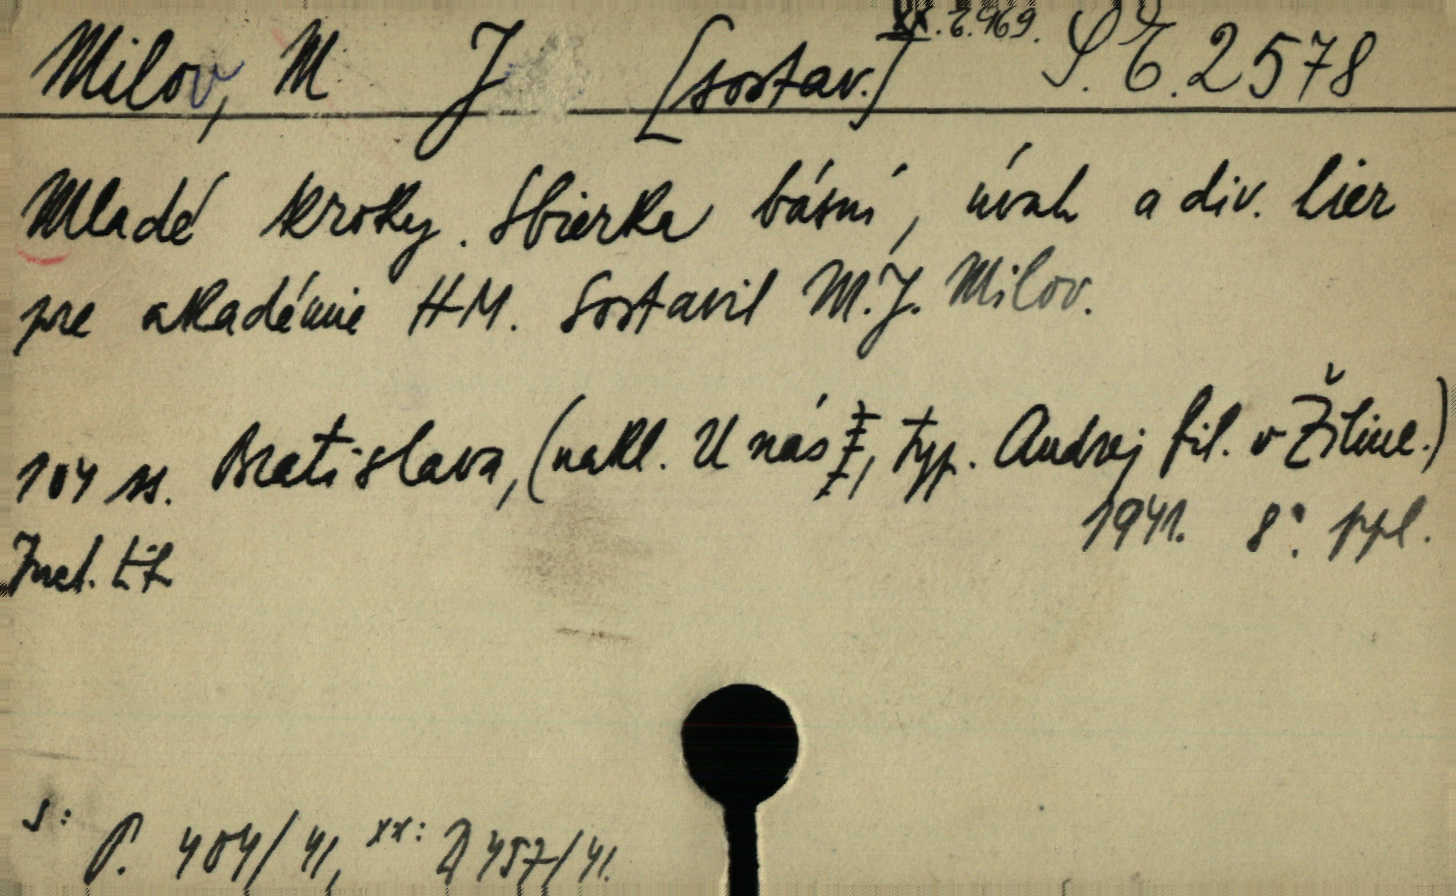 xx. E.969.
Milov, M J [sostav.] S.E.2578
Mladé kroky. Sbierka básní, úvah a div. hier
pre akadémie HM. Sostavil M.J. Milov.
104 ss. Bratislava, (nakl. U nás, typ. Andrej fil. v Žiline.)
1941. 8°. ppl.
s: P. 404/41, xx: D 457/41.